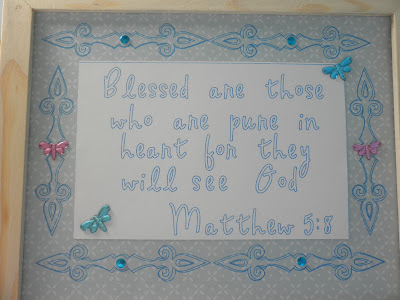 Blessed are those
who are pure in
heart for they
will see God
Matthew 5:8